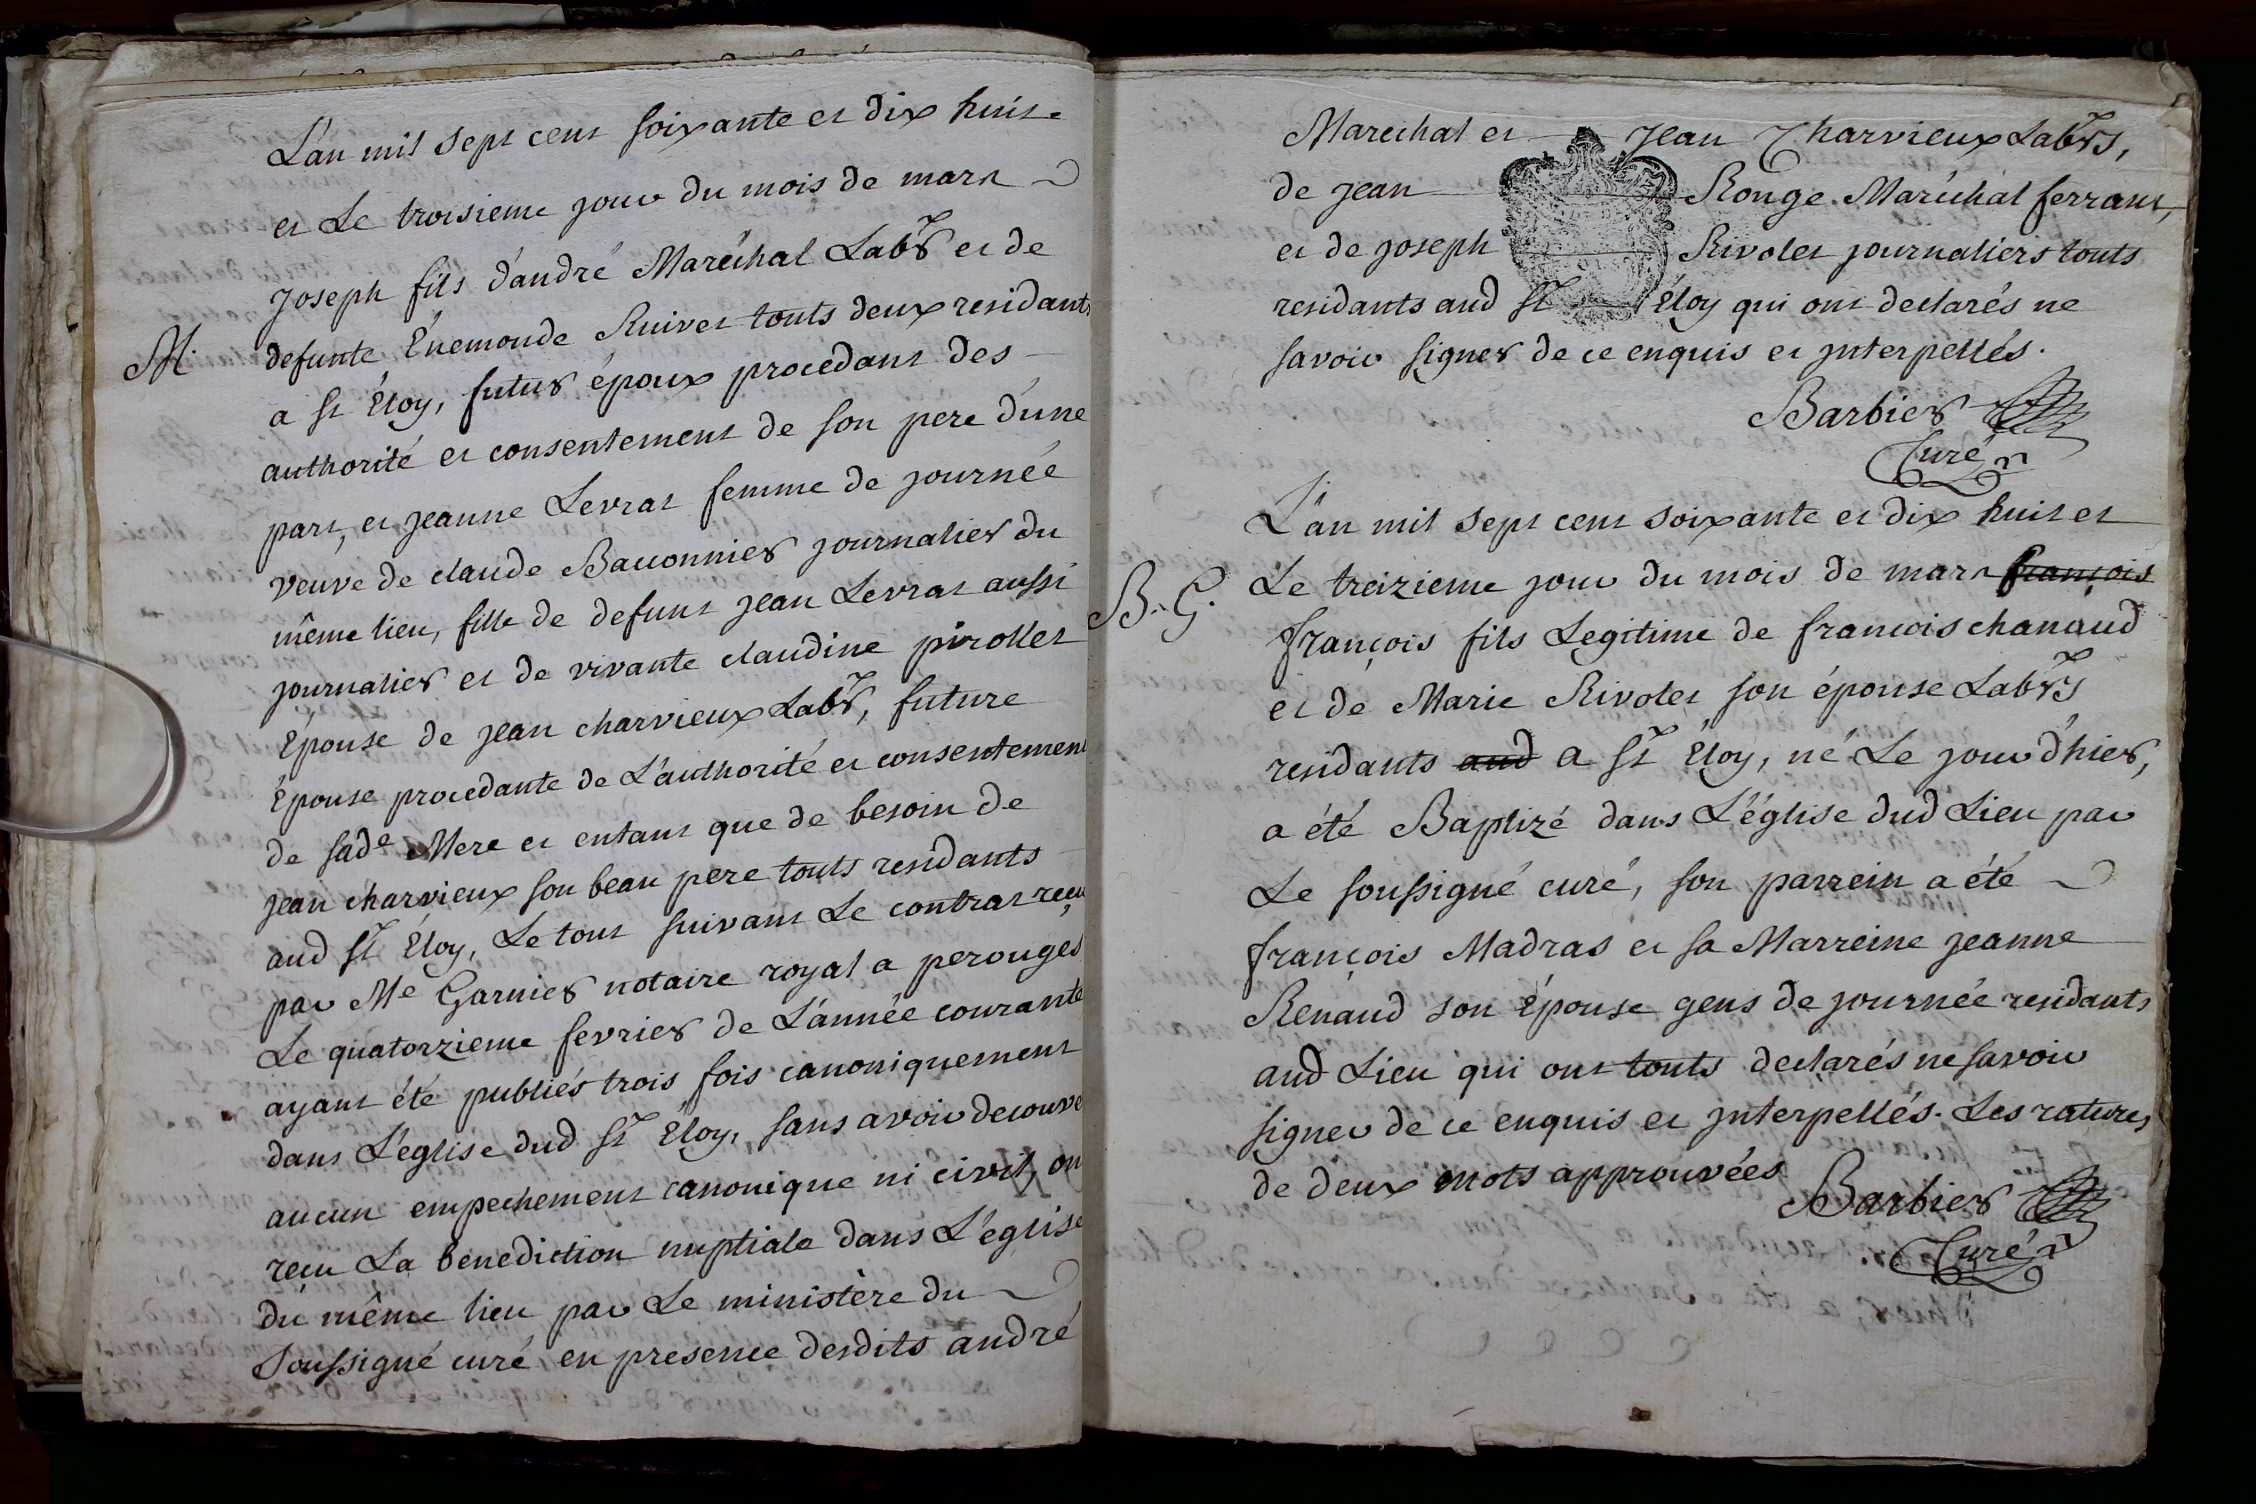 L'an mil sept cent soixante et dix huit
et Le troisieme jour du mois de mars
Joseph fils d'andré Maréchal Labr et de
M.
defunte Énemonde Ruivet touts deux residants
a St Éloy, futur époux procedant des
authorité et consentement de son pere d'une
part, et jeanne Levrat femme de journée
veuve de claude Bauonnier journalier du
même lieu, fille de defunt jean Levrat aussi
journalier et de vivante claudine pirollet
Épouse de jean charvieux Labr, future
Épouse procedante de L'authorité et consentement
de sade Mere et entant que de besoin de
jean charvieux son beau pere touts residants
aud St Éloy, Le tout suivant Le contrat reçu
par Me Garnier notaire royal a perouges
Le quatorzieme fevrier de L'année courante
ayant été publiés trois fois canoniquement
dans L'église dud St Éloy, sans avoir decouve
aucun empechement canonique ni civil, on
reçu La benediction nuptiale dans L'église
du même lieu par Le ministère du
Soussigné curé, en presence desdits andré
Marechal et Jean Charvieux Labrs,
de jean Ronge Maréchal ferrant,
et de joseph Rivolet journaliers touts
residants aud St Éloy qui ont declarés ne
savoir signer de ce enquis et jnterpellés.
Barbier
Curé
L'an mil sept cent soixante et dix huit et
B. G.
Le treizieme jour du mois de mars françois
françois fils Legitime de francois chanaud
et de Marie Rivolet son épouse Labrs
residants aud a St Éloy, né Le jour d'hier,
a été Baptizé dans L'église dud Lieu par
Le soussigné curé, son parrein a été
françois Madras et sa Marreine jeanne
Renaud son Épouse gens de journée residants
aud Lieu qui ont touts declarés ne savoir
signer de ce enquis et jnterpellés. Les ratures
de deux mots approuvées
Barbier
Curé